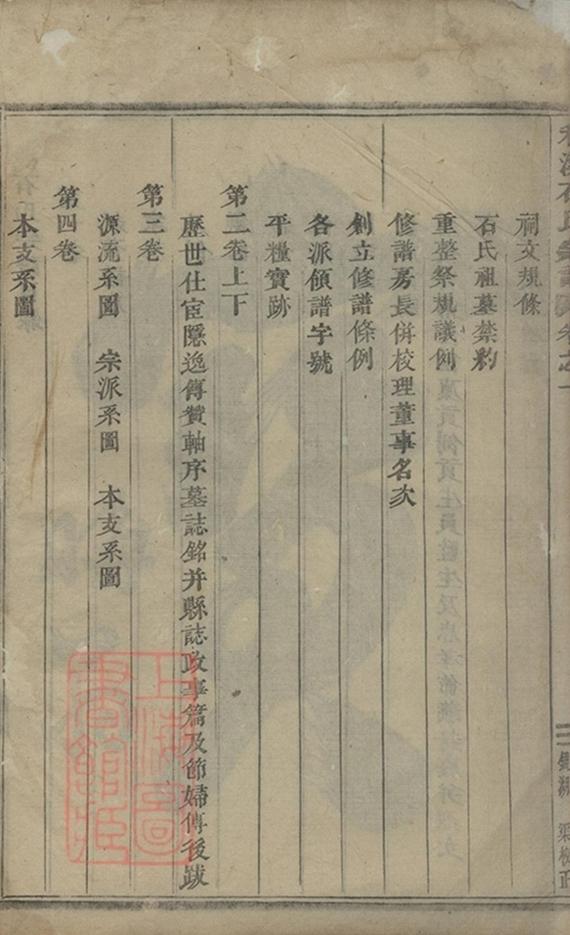 祠文規條
石氏祖墓禁約
重整祭規議例
修譜房長併校理董事名次
創立修譜條例
各派領譜字號
平糧實跡
第二卷上下
歷世仕宦隱逸傳贊軸序墓誌銘并縣誌政事篇及節婦傳後跋
第三卷
源流系圖　宗派系圖　本支系圖
第四卷
本支系圖
上海圖書館藏